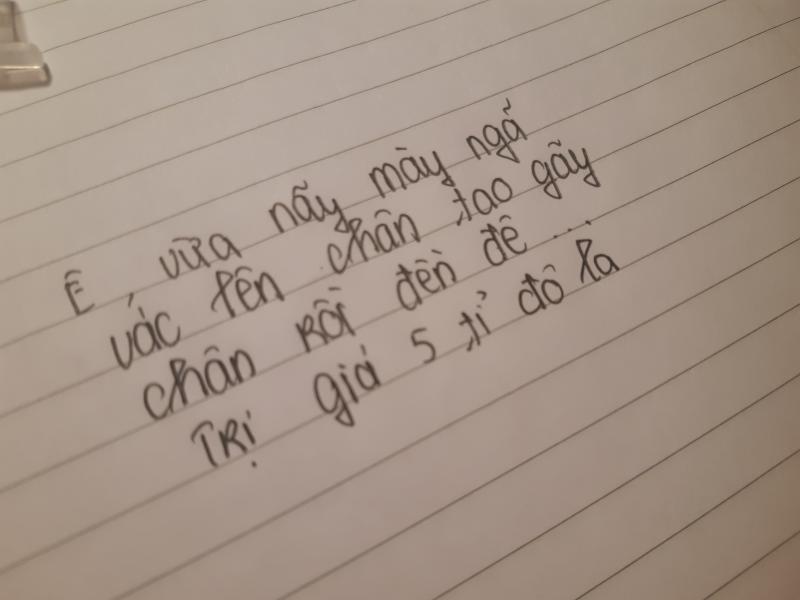 Ê, vừa nãy mày ngã
vác lên chân tao gãy
chân rồi đền đê ...
Trị giá 5 tỉ đô la